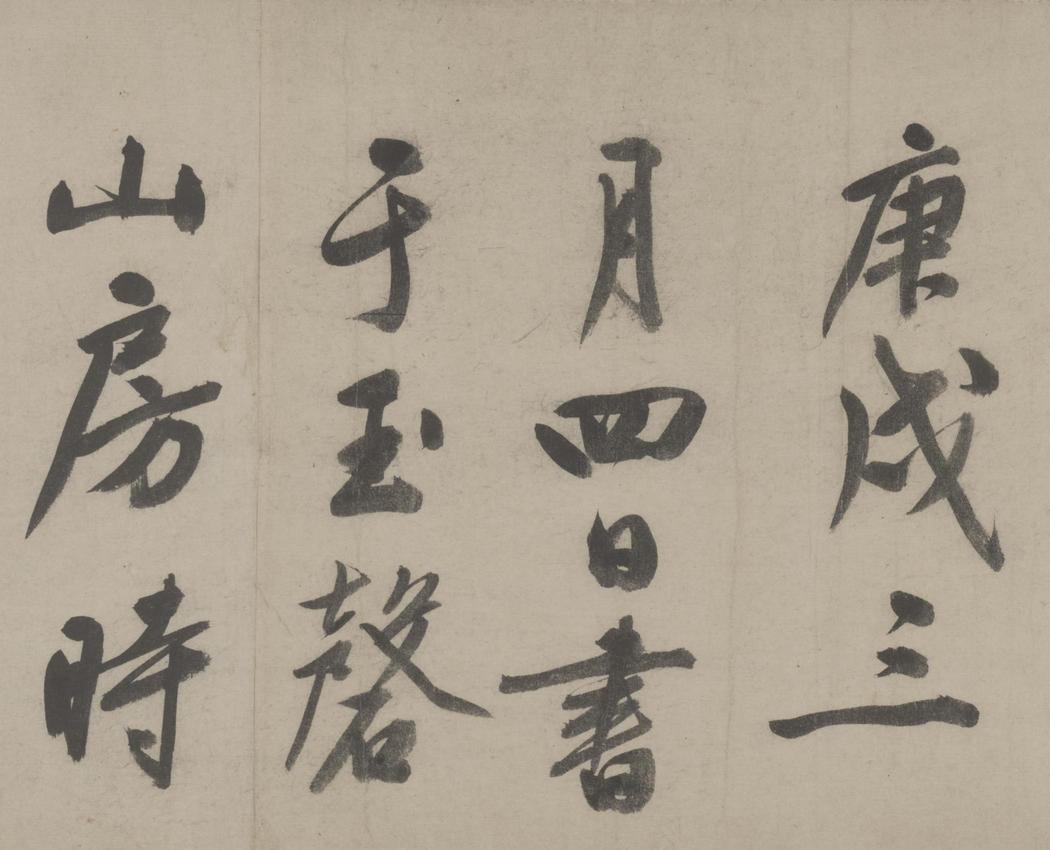 庚戌三
月四日書
于玉磬
山房時